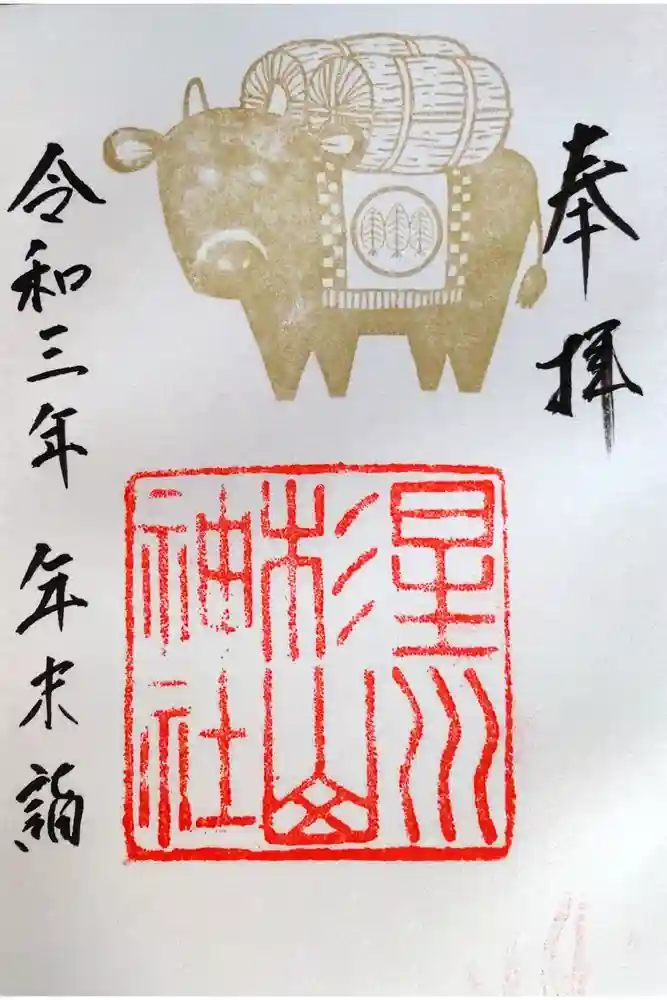 奉拝
星川
杉山
神社
令和三年 年末詣